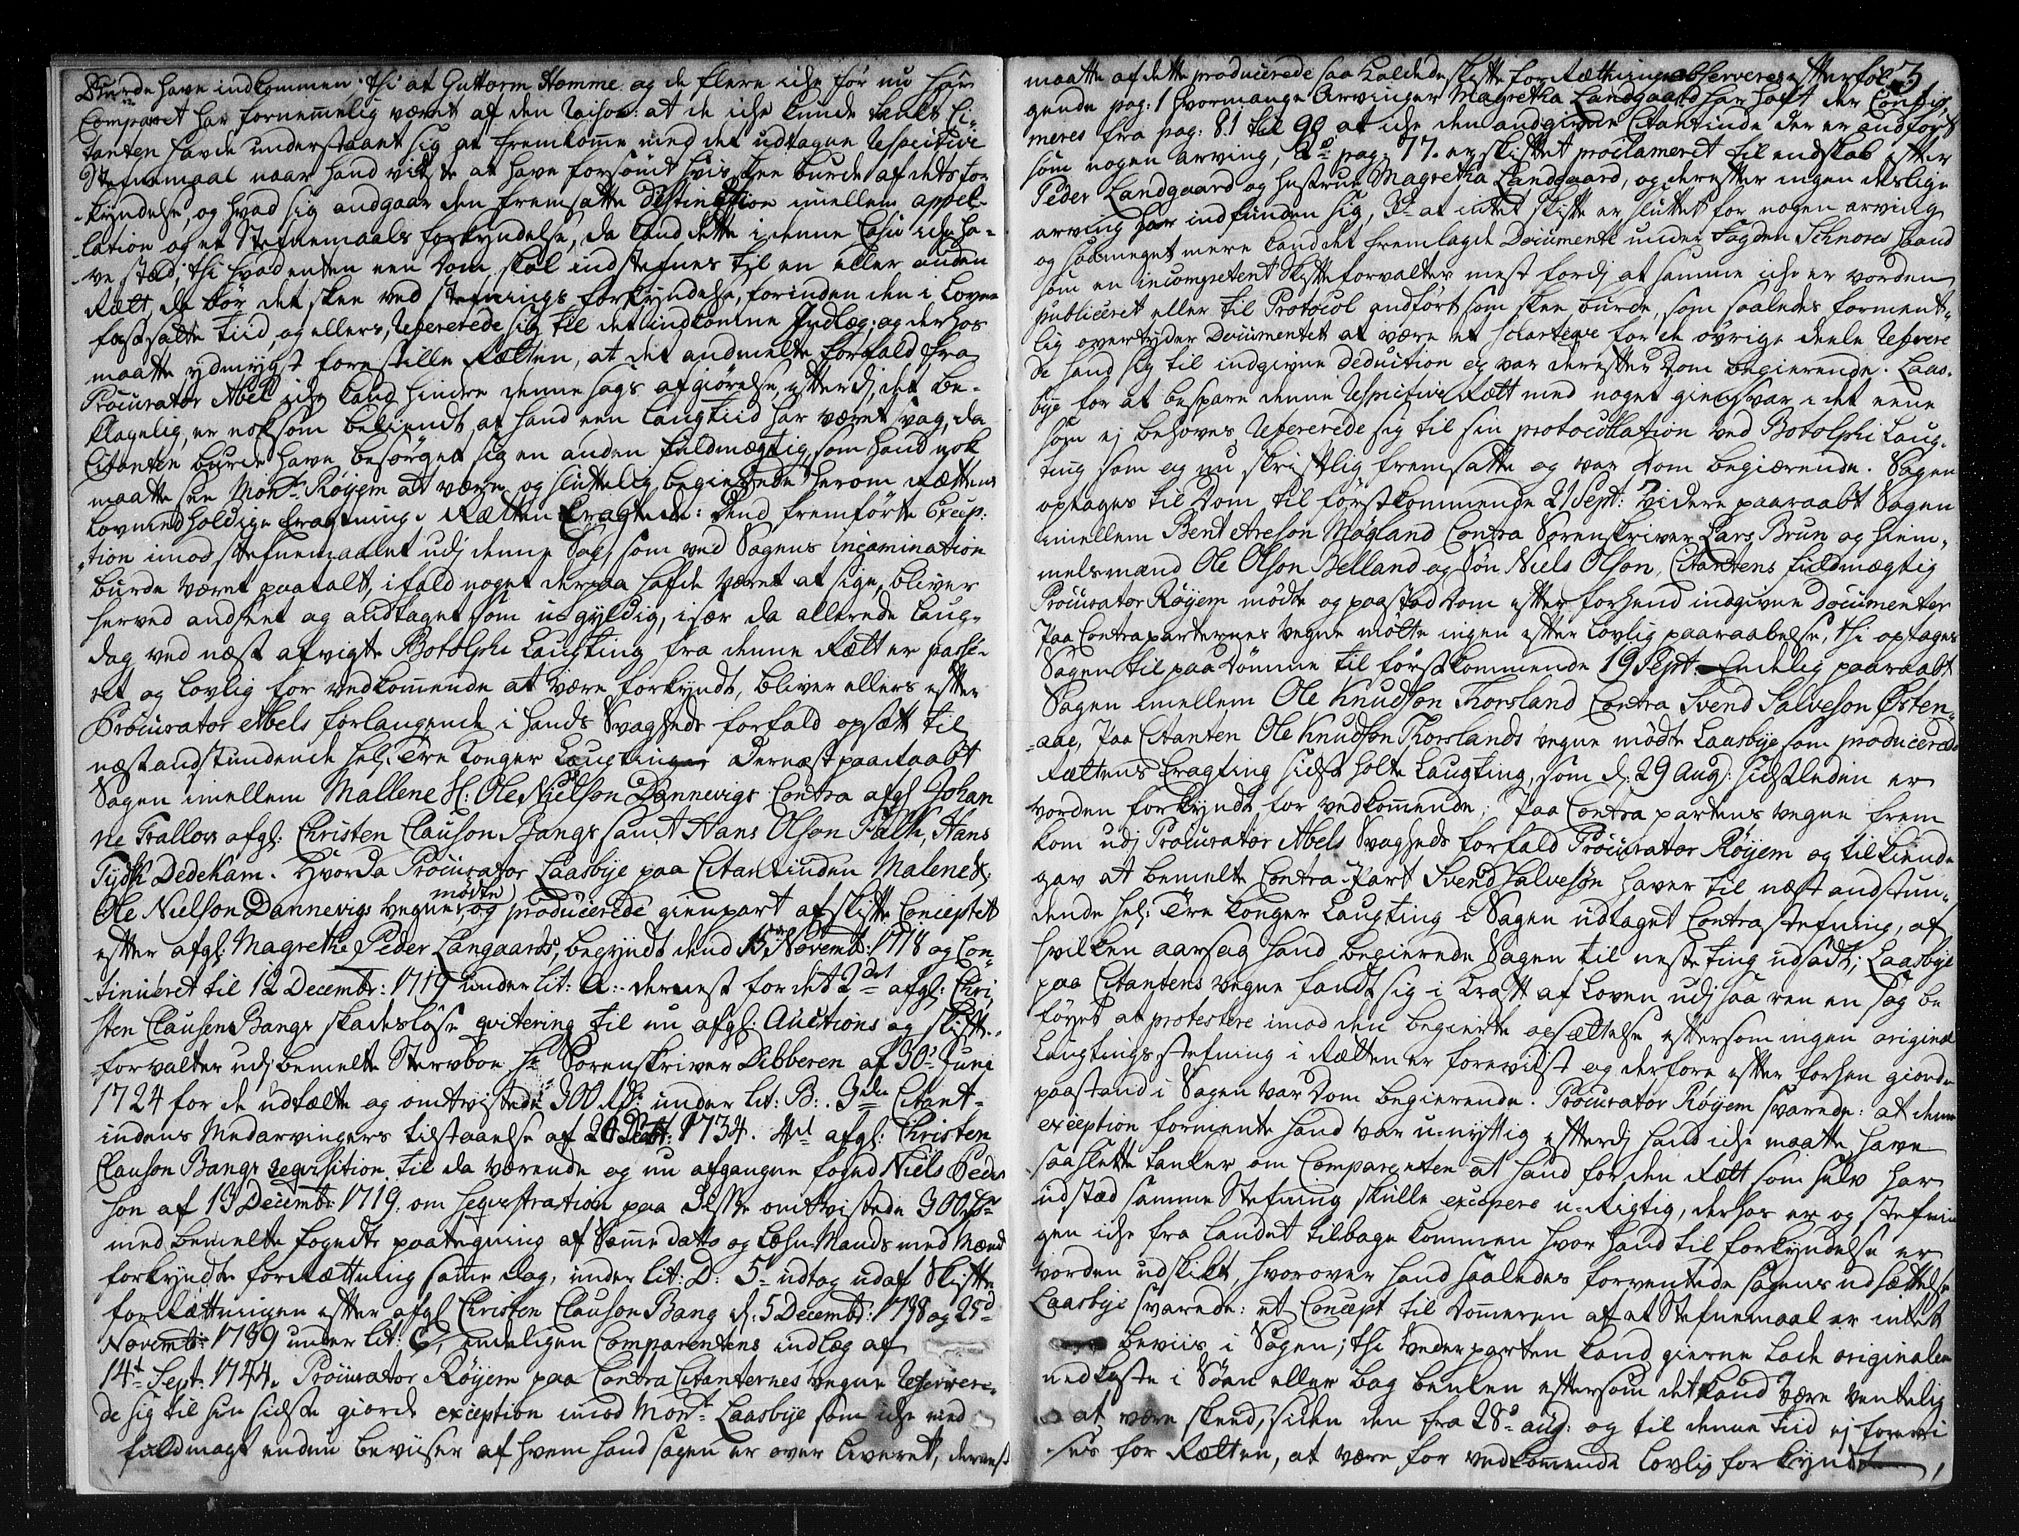 burde have indkommen; thi at Guttorm Homme og de flere iche før nu har
Comparet har fornemmelig været af den raison: at de iche kunde tænkt Ci-
tanten havde understaaet sig at fremkomme med det udtagne respective
Stefnemaal naar hand vidste at have forsømt hvis skee burde af dets for
kyndelse, og hvad sig andgaar den fremsatte distinction imellem appel-
lation og et Stefnemaals forkyndelse, da kand dette i denne Casu iche ha-
ve stæd; thi hvad enten een dom skal indstefnes til en eller anden
Rætt, da bør det skee ved stefnings forkyndelse, forinden den i Loven
fastsatte tiid, og ellers, refererede sig til det indkomne Indlæg; og derhos
maatte ydmygst forestille Rætten, at det andmelte forfald fra
Procurator Abel iche kand hindre denne sags afgiørelse, efterdj det be-
klagelig, er noksom bekiendt, at hand een langtiid har været svag, da
Citanten burde have besørget sig en anden fuldmægtig, som hand nok
maatte see Monr. Røyem at være, og sluttelig begierede herom Rættens
Lovmedholdige Eragtning. Rætten Eragtede: Dend fremførte Excep-
tion imod stefnemaalet udj denne Sag, som ved Sagens incamination
burde været paatalt, ifald noget derpaa hafde været at sige, bliver
herved andseet og andtaget som ugyldig, især da allerede laug-
dag ved næst afvigte Botolphi Laugting fra denne Rætt er passe-
ret og lovlig for vedkommende at være forkyndt, bliver ellers efter
Procurator Abels forlangende i hands Svagheds forfald opsatt til
næstandstundende hel. Tre Konger Laugting. Dernæst paaraabt
Sagen imellem Mallene Sl: Ole Nielson Dannevigs Contra afgl. Johan
ne Trallow afgl: Christen Clauson Bangs samt Hans Olson Falk, Hans
Tydk Dedekam. Hvorda Procurator Laasbye paa Citantinden Malene Sl:
Ole Nielson Dannevigs vegne mødte og producerede gienpart af skifte Conceptet
efter afgl: Magrethe Peder Langaards, begyndt dend 15 Novembr: 1718 og Con-
tinueret til 12 Decembr: 1719 under lit: A: dernest for det 2det afgl: Chri-
sten Clausen Bangs skadesløse qvitering til nu afgl: Auctions og skifte-
forvalter udj bemelte Stervboe Sr. Sorenskriver Dibberen af 30te Junj
1724 for de udtælte og omtvistede 300 rdr. under lit: B: 3die Citant-
indens Medarvingers tilstaaelse af 20 Sept: 1734. 4de afgl: Christen
Clauson Bangs reqvisition til da værende og nu afgangne foged Niels Peder
son af 13 Decembr: 1719. om seqvestration paa disse omtvistede 300 rdr.
med bemelte fogeds paategning af Samme datto og Lehns Mands med Mænd
forkyndte forrættning samme dag, under lit: D: 5te udtog udaf Skifte
forrættningen efter afgl. Christen Clauson Bang d: 5 Decembr: 1738 og 25de
Novembr: 1739 under lit: E, endeligen Comparentens indlæg af
14de Sept: 1744. Procurator Røyem paa Contra Citanternes vegne refere-
de sig til sin sidste giorde exception imod Monr. Laasbye som iche med
fuldmagt endnu beviiser af hvem hand sagen er over leveret, dernest
3
maatte af dette producerede saa kaldede skifte forrættning observeres efterføl-
gende pag: 1 hvormange Arvinger Magretha Landgaard har haft der Confir-
meres fra pag: 81 til 90 at iche den andgivne Citantinde der er andført
som nogen arving, 2do pag: 77. er skiftet proclameret til endskab efter
Peder Landgaard og hustrue Magretha Landgaard, og derefter ingen deslige
arving har indfunden sig, 3tio at intet skifte er sluttet for nogen arving
og saa meget mere kand det fremlagde Documente under Fogden Schnores haand
som en incompetent skifteforvalter mest fordj at samme iche er vorden
publiceret eller til Protocol andført som skee burde, som saaledes forment-
lig overtyder Documentet at være et scharteqve for de øvrige deele refere-
de hand sig til indgivne deduction og var derefter Dom begierende. Laas-
bye for at bespare denne respective Rætt med noget giensvar i det eene
som ej behøves, refererede sig til sin protocollation ved Botolphi Laug-
ting som og nu skriftlig fremsatte og var Dom begiærende. Sagen
optages til Dom til førstkommende 21 Sept: Videre paaraabt Sagen
imellem Bent Areson Møgland Contra Sorenskriver Lars Brun og hiem-
melsmænd Ole Olson Belland og Søn Niels Olson, Citantens fuldmægtig
Procurator Røyem mødte og paastod Dom efter forhend indgivne Documenter
Paa Contraparternes vegne mötte ingen efter lovlig paaraabelse, thi optages
Sagen til paadømme til førstkommende 19 Sept. Endelig paaraabt
Sagen imellem Ole Knudson Thorsland Contra Svend Salveson Østen-
aae, Paa Citanten Ole Knudson Thorslands vegne mødte Laasbye som producerede
Rættens Eragting sidst holte Laugting, som d: 29 Aug: sidstleden er
vorden forkyndt for vedkommende; Paa Contra partens vegne frem
kom udj Procurator Abels Svagheds forfald Procurator Røyem og tilkiende
gav at bemelte Contra-Part Svend Salvesøn haver til næst andstun-
dende hel: Tre Konger Laugting i Sagen udtaget Contrastefning, af
hvilken aarsag hand begierede Sagen til neste ting udsadt; Laasbye
paa Citantens vegne fandt sig i kraft af Loven udj saa reen en sag be
føyet at protestere imod den begierte opsættelse eftersom ingen original
Laugtings stefning i Rætten er foreviist og derfore efter forhen giorde
paastand i Sagen var Dom begierende. Procurator Røyem svarede: at denne
exception formente hand var unyttig efterdj hand iche maatte have
saa slette tanker om Comparenten at hand for den Rætt som selv har
udstæd samme Stefning skulle excipere u-rigtig, derhos er og stefnin
gen iche fra Landet tilbage kommen hvor hand til forkyndelse er
vorden udskikt, hvorover hand saaledes forventede sagens udsættelse
Laasbye svarede: et Concept til Dommeren af et Stefnemaal er intet
beviis i Sagen; thi vederparten kand gierne lade originalen
nedkaste i Søen eller bag benken eftersom det kand være ventelig
at være skeed, siden den fra 28de aug: og til denne tiid ej forevi
ses for Rætten, at være for vedkommende lovlig forkyndt